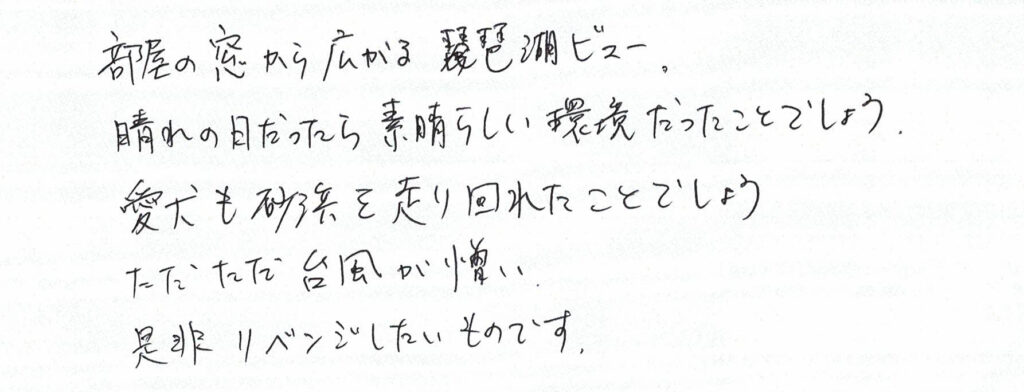 部屋の窓から広がる琵琶湖ビュー。
晴れの日だったら素晴らしい環境だったことでしょう。
愛犬も砂浜を走り回れたことでしょう
ただただ台風が憎い.
是非リベンジしたいものです。